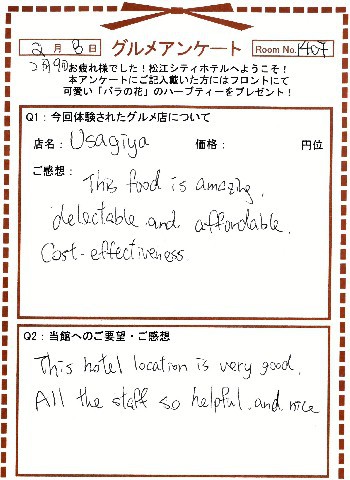 2月8日 グルメアンケート Room No. 1407
2月9日
お疲れ様でした！松江シティホテルへようこそ！
本アンケートにご記入戴いた方にはフロントにて
可愛い「バラの花」のハーブティーをプレゼント！
Q1：今回体験されたグルメ店について
店名：Usagiya 価格： 円位
ご感想：
This food is amazing,
delectable and affordable.
Cost-effectiveness.
Q2：当館へのご要望・ご感想
This hotel location is very good.
All the staff so helpful and nice